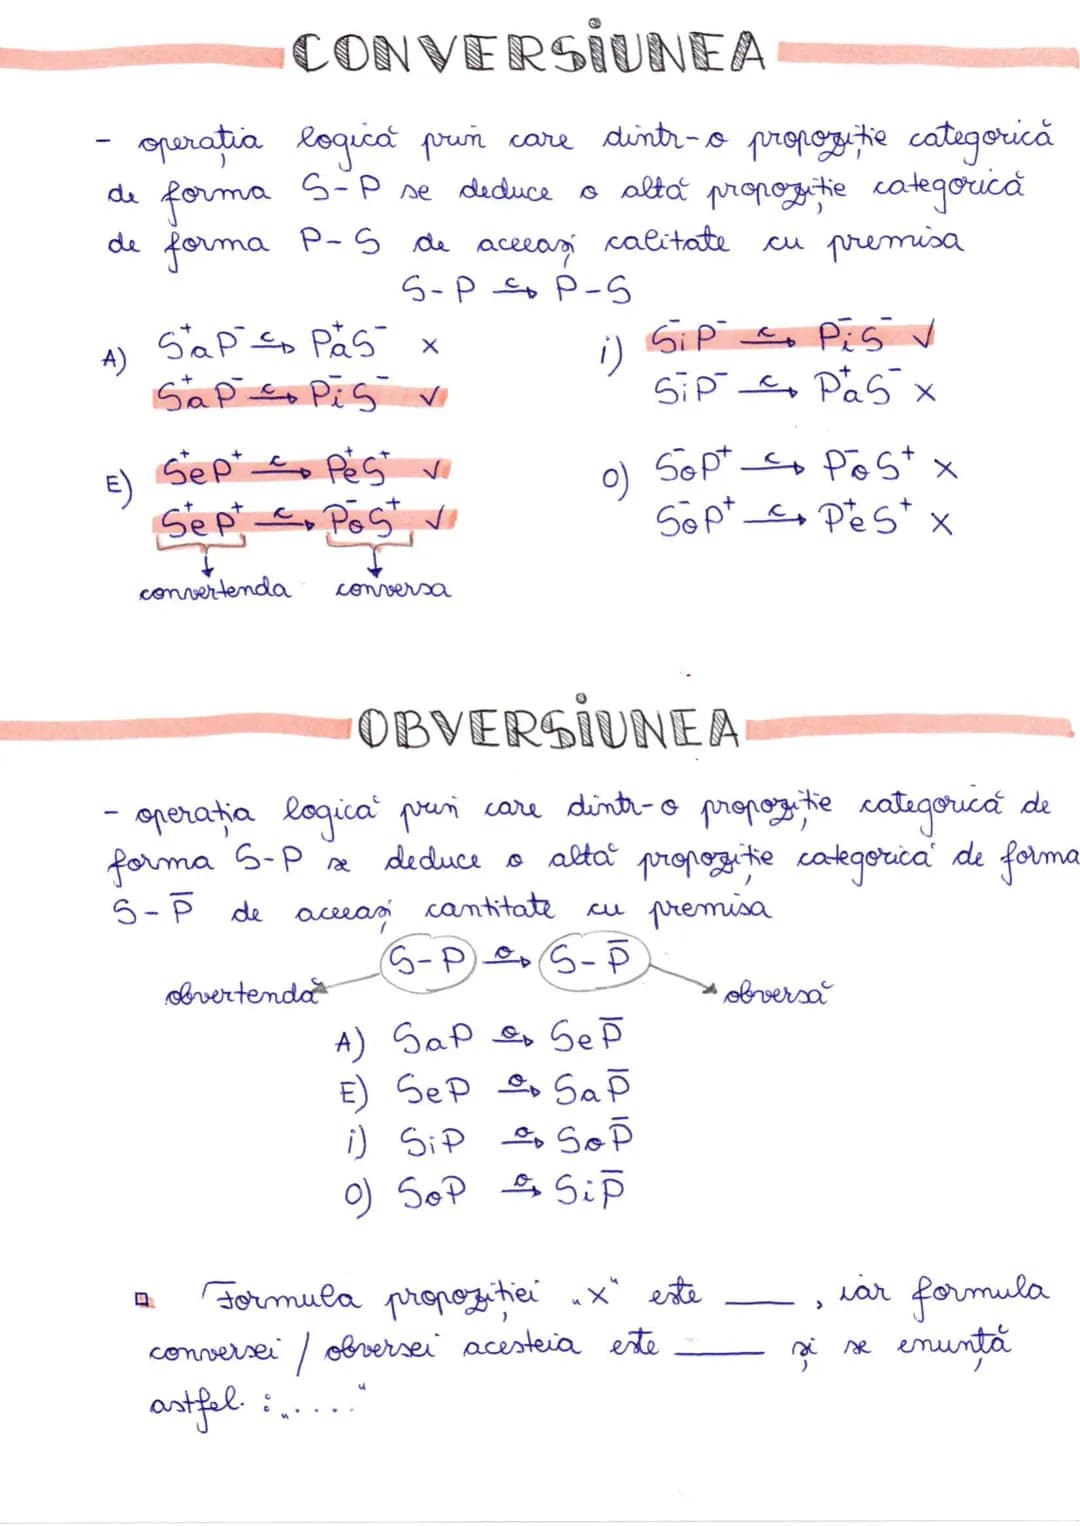 CONVERSiUNEA
- operația logică prin care dintr-o propoziție categorică
de forma S-P se deduce o altă propoziție categorică
de forma P-S de aceeași calitate cu premisa
S-P c→ P-S
A) S⁺aP⁻ c→ P⁺aS⁻ x
S⁺aP⁻ c→ P⁻iS⁻ ✓
E) S⁺eP⁺ c→ P⁺eS⁺ ✓
S⁺eP⁺ c→ P⁻oS⁺ ✓
convertenda conversa
i) S⁻iP⁻ c→ P⁻iS⁻ ✓
S⁻iP⁻ c→ P⁺aS⁻ x
O) S⁻oP⁺ c→ P⁻oS⁺ x
S⁻oP⁺ c→ P⁺eS⁺ x
OBVERSiUNEA
- operația logică prin care dintr-o propoziție categorică de
forma S-P se deduce o altă propoziție categorică de forma
S-P̄ de aceeași cantitate cu premisa
S-P o→ S-P̄
obvertendă obversă
A) SaP o→ SeP̄
E) SeP o→ SaP̄
i) SiP o→ SoP̄
O) SoP o→ SiP̄
Formula propoziției „x" este ___, iar formula
conversei / obversei acesteia este ___ și se enunță
astfel: „...."